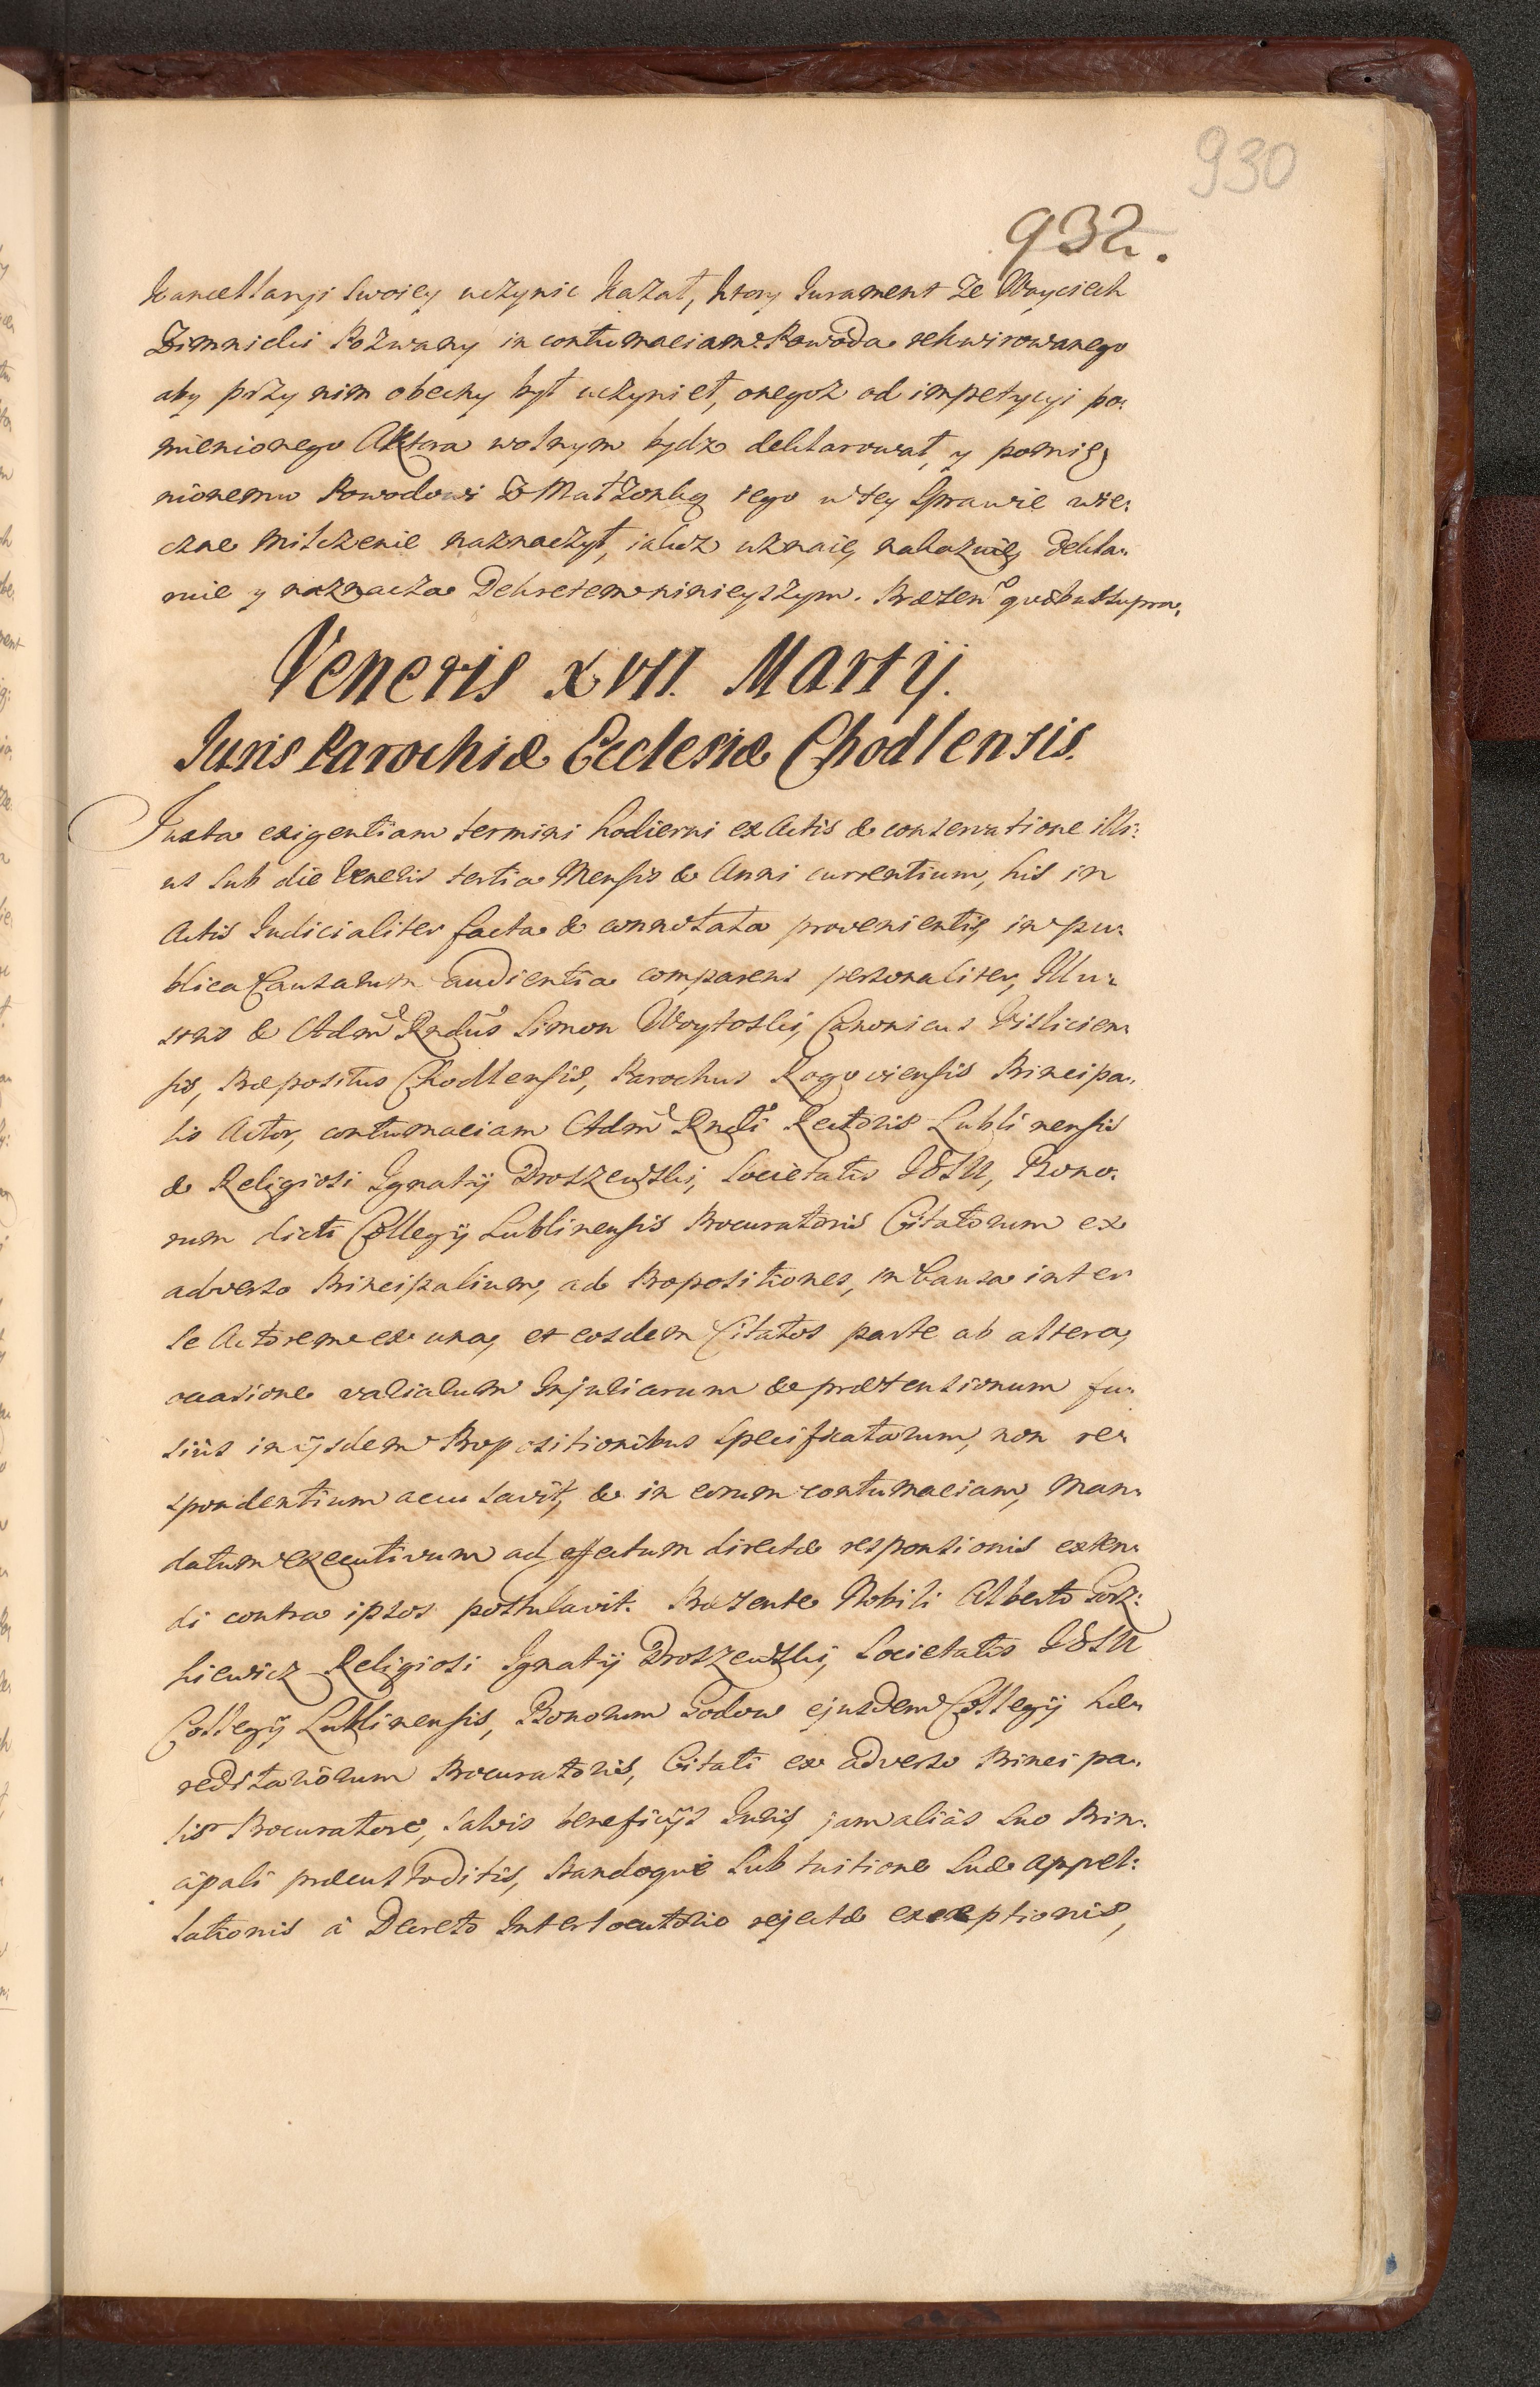 930
932.
Kancellaryi Swoiey uczynic kazał, ktory Jurament ze Woyciech
Zimnicki Pozwany in contumaciam Powoda rekwirowanego
aby przy nim obecny był uczynieł, onegoz od impetycyi po:
mienionego Aktora wolnym bydz deklarował, y pomię,
nionemu Powodowi z Małzonką iego w tey Sprawie wie:
czne milczenie naznaczył, iakoz uznaie, nakazuie, dekla:
ruie y naznacza Dekretem ninieyszym. Præsen quibus supra.
Veneris XVII. Martij.
Juris Parochiæ Ecclesiæ Chodlensis.
Juxta exigentiam termini hodierni ex Actis & conservatione illi:
us sub die Veneris tertia Mensis & Anni currentium, his in
Actis Judicialiter facta & connotata provenientis, in pu:
blica Causarum audientia comparens personaliter, Illu:
stris & Adm Rndus Simon Woytoski, Canonicus Visliciens:
sis, Præpositus Chodlensis, Parochus Rogoviensis Principa:
lis Actor, contumaciam Adm Rndi Rectoris Lublinensis
& Religiosi Ignatij Droszewski, Societatis JESU, Bono:
rum dicti Collegij Lublinensis Procuratoris Citatorum ex
adverso Principalium, ad Propositiones, in Causa inter
se Actorem ex una, et eosdem Citatos parte ab altera,
occasione variarum Injuriarum & prætensionum fu:
siùs in ijsdem Propositionibus specificatarum, non re:
spondentium accusavit, & in eorum contumaciam, Man:
datum executivum ad effectum directæ responsionis exten:
di contra ipsos postulavit. Præsente Nobili Alberto Gorz:
kiewicz Religiosi Ignatij Droszewski, Societatis JESU
Collegij Lublinensis, Bonorum Godow ejusdem Collegij hæ:
reditariorum Procuratoris, Citati ex adverso Principa:
lis Procuratore, salvis beneficijs Juris, jam aliàs suo Prin:
cipali præcustoditis, standoque sub tuitione suæ appel:
lationis à Decreto Interlocutorio rejectæ exceptionis,